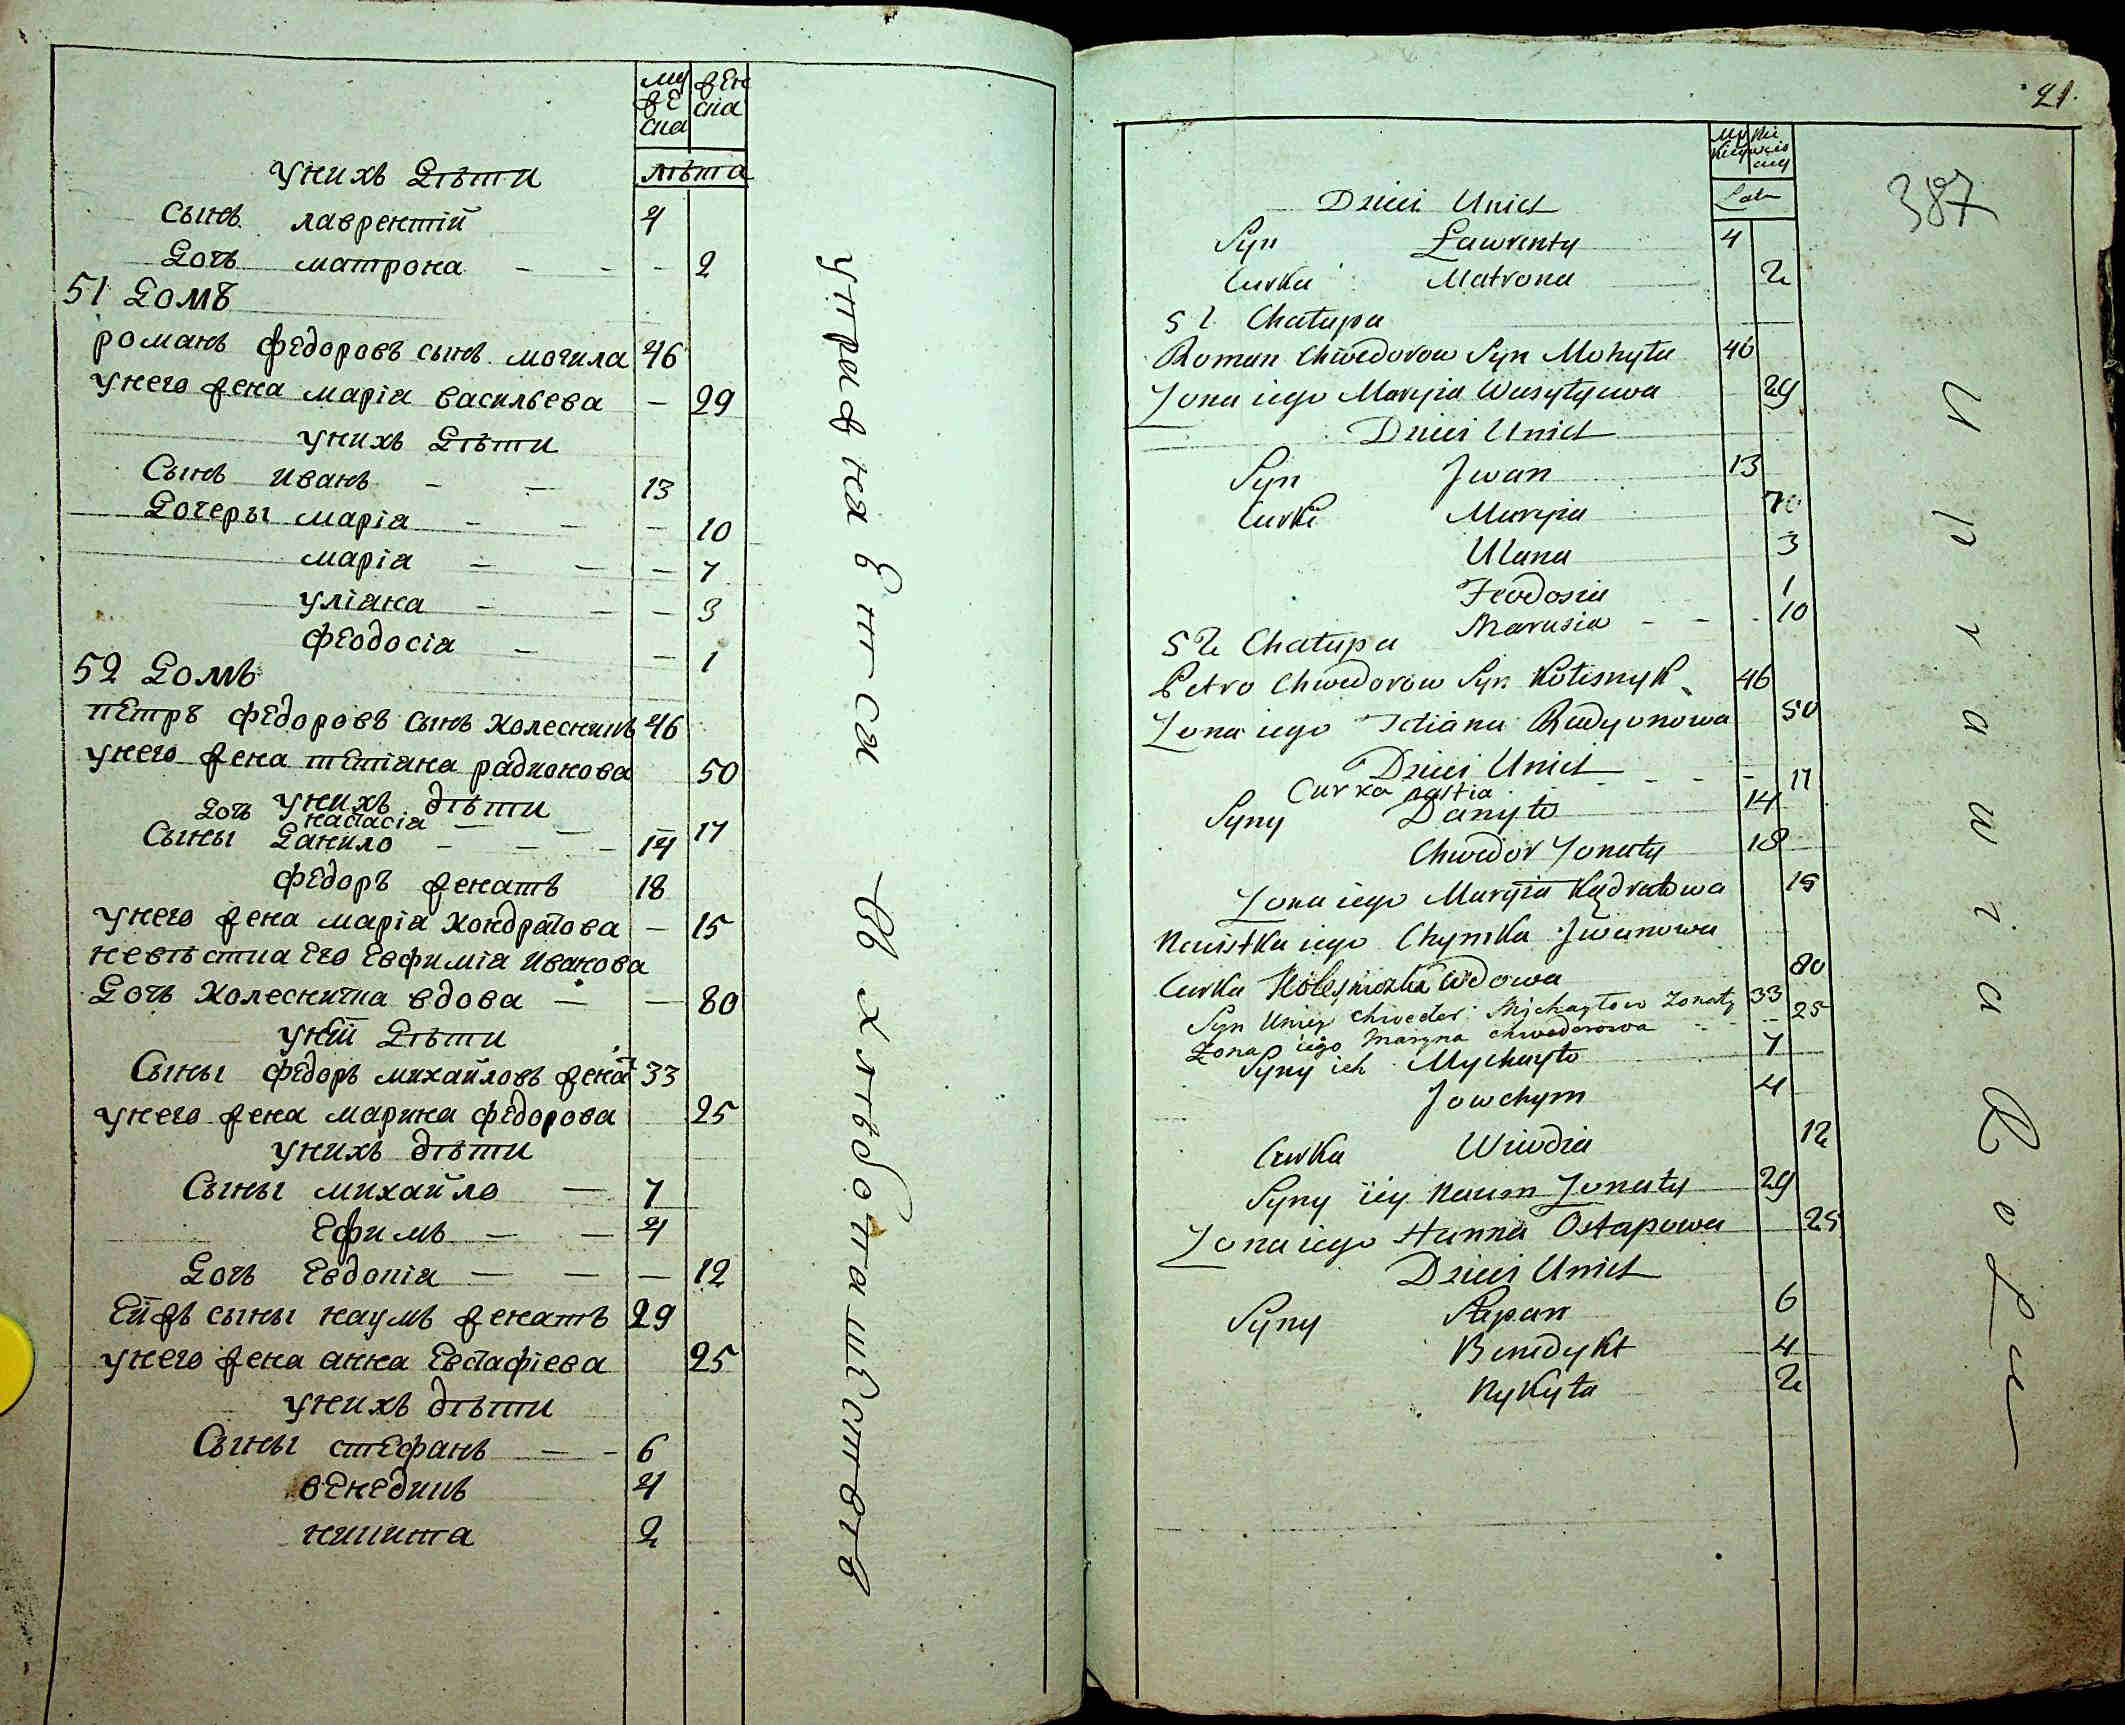 му
же
ска
жен
ска
лѣта
унихъ Дѣти
сынъ лаврентій 4
Дочь матрона - - - 2
51 Домъ
романъ федоровъ сынъ могила 46
унего жена маріа васильева - 29
унихъ Дѣти
Сынъ иванъ - - 13
Дочеры маріа - - - 10
маріа - - - 7
уліана - - - 3
феодосіа - - 1
52 Домъ
петръ федоровъ сынъ колесникъ 46
унего жена тетіана радионова 50
унихъ дѣти
Дочь настасіа - - - 17
Сыны Данило - - - 14
федоръ женатъ 18
унего жена маріа кондратова - 15
невѣстка его евфиміа иванова
Дочь колесничка вдова - - 80
уней Дѣти
Сыны федоръ михайловъ женат 33
унего жена марина федорова 25
унихъ дѣти
Сыны михайло - 7
ефимъ - - 4
Дочь евдокіа - - - 12
ейжъ сыны наумъ женатъ 29
унего жена анна евстафіева 25
унихъ дѣти
Сыны стефанъ - - 6
венедиктъ 4
никита 2
упражняется
въ хлѣбопашествѣ
21.
387
Lata
Dzieci Unich
Syn Ławrenty 4
Curka Matrona 2
51 Chałupa
Roman Chwedorow Syn Mohyła 46
Zona iego Maryia Wasylycwa 29
Dzieci Unich
Syn Jwan 13
Curki Maryia 10
Ulana 3
Feodosia 1
Marusia - - - 10
52 Chałupa
Petro Chwedorow Syn Kolisnyk 46
Zona iego Tetiana Radyonowa 50
Dzieci Unich
Curka nastia - - - - 17
Syny Danyło 14
Chwedor Zonaty 18
Zona iego Maryia Kądratowa 15
Newistka iego Chymka Jwanowa
Curka Kolesniczka Wdowa 80
Syn Uniey Chwedor Michayłow Zonaty 33
Zona iego Maryna Chwedorowa - - - 25
Syny ich Mychayło 7
Jowchym 4
Curka Wiwdia 12
Syny iiey Naum Zonaty 29
Zona iego Hanna Ostapowa 25
Dzieci Unich
Syny Stepan 6
Benedykt 4
Nykyta 2
Uprawia Rolu